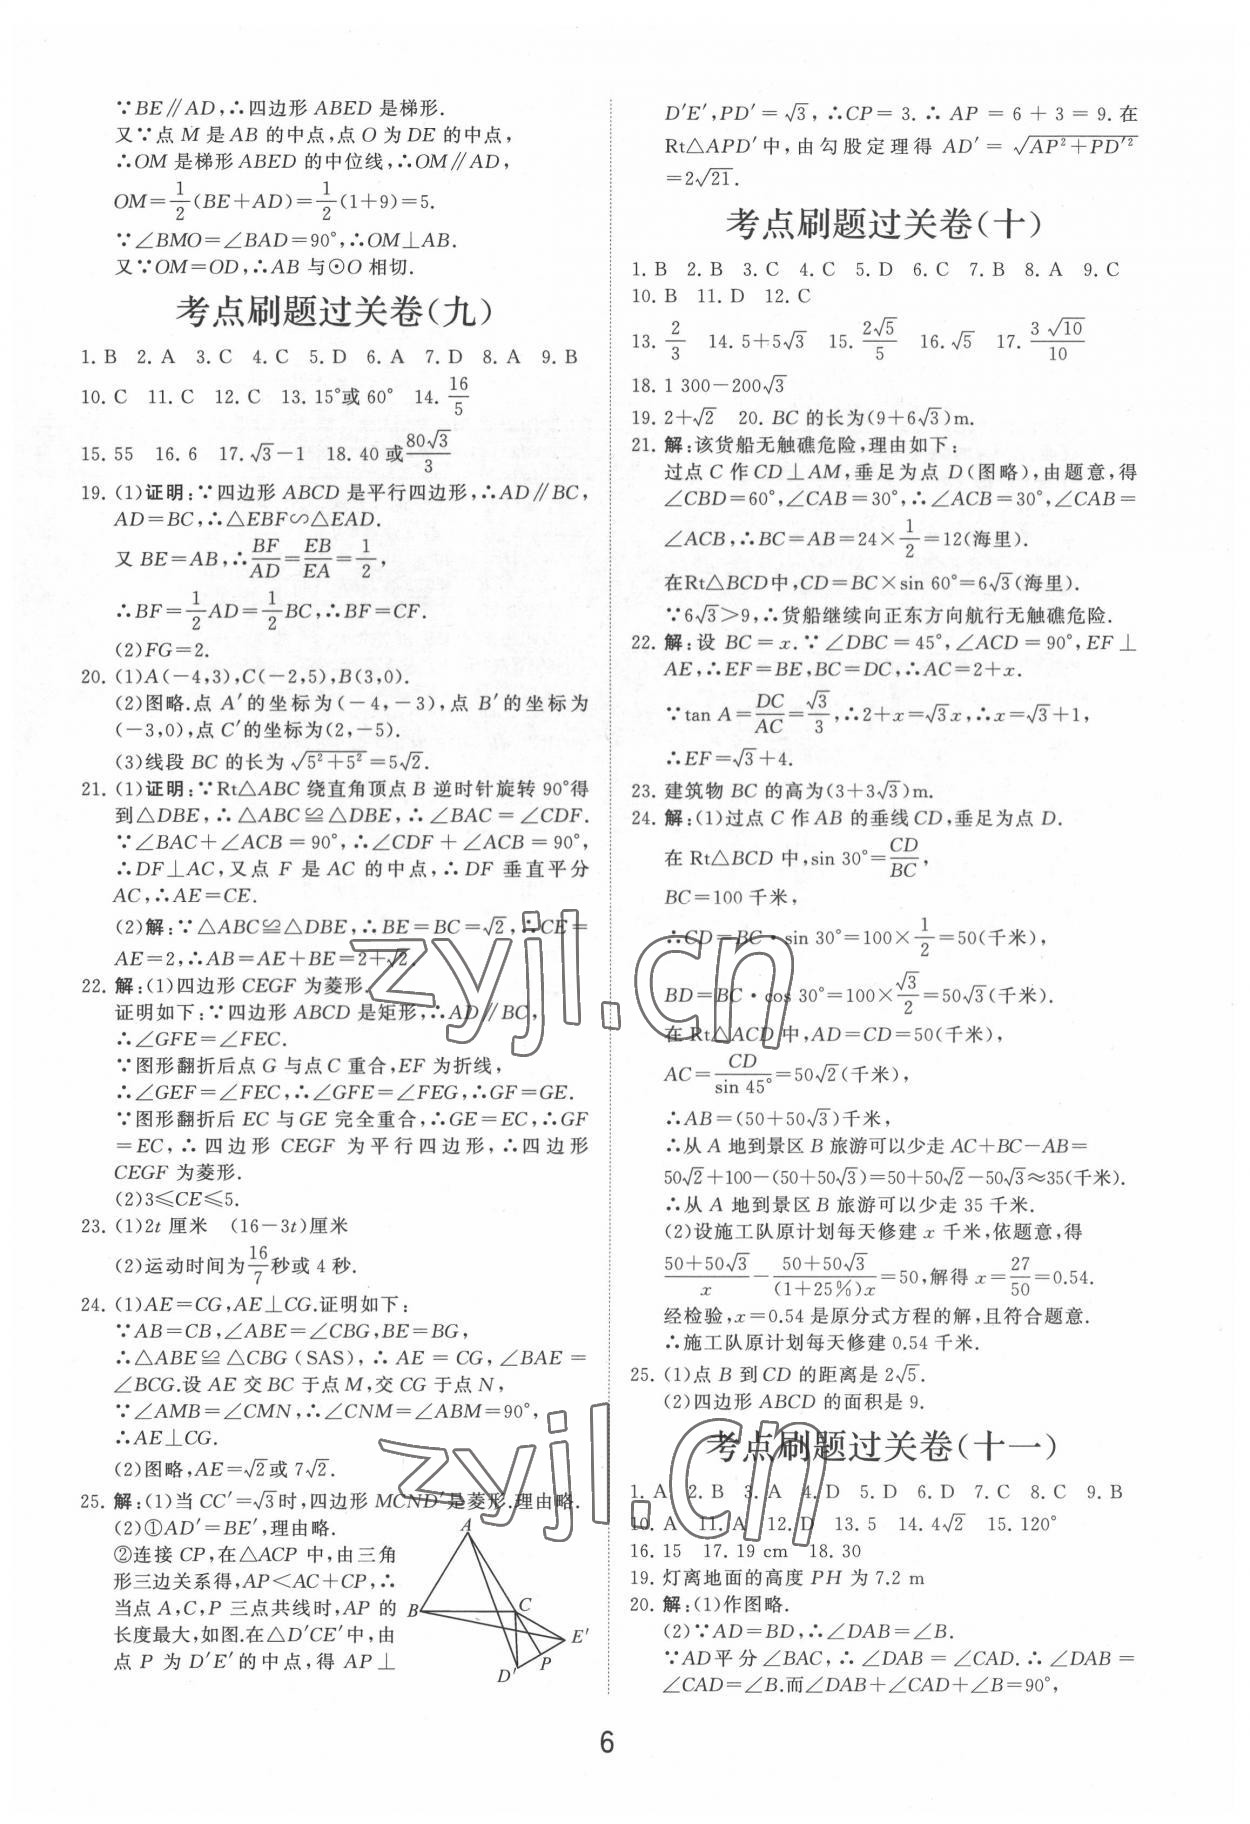 ∵BE∥AD,∴四边形 ABED 是梯形.
又∵点 M 是 AB 的中点,点 O 为 DE 的中点,
∴OM 是梯形 ABED 的中位线,∴OM∥AD,
OM=1/2(BE+AD)=1/2(1+9)=5.
∵∠BMO=∠BAD=90°,∴OM⊥AB.
又∵OM=OD,∴AB 与⊙O 相切.
考点刷题过关卷(九)
1. B 2. A 3. C 4. C 5. D 6. A 7. D 8. A 9. B
10. C 11. C 12. C 13. 15°或 60° 14. 16/5
15. 55 16. 6 17. √3-1 18. 40 或80√3/3
19. (1)证明:∵四边形 ABCD 是平行四边形,∴AD∥BC,
AD=BC,∴△EBF∽△EAD.
又 BE=AB,∴BF/AD=EB/EA=1/2,
∴BF=1/2AD=1/2BC,∴BF=CF.
(2)FG=2.
20. (1)A(-4,3),C(-2,5),B(3,0).
(2)图略.点 A′的坐标为(-4,-3),点 B′的坐标为
(-3,0),点 C′的坐标为(2,-5).
(3)线段 BC 的长为 √(5²+5²)=5√2.
21. (1)证明:∵Rt△ABC 绕直角顶点 B 逆时针旋转 90°得
到△DBE,∴△ABC≌△DBE,∴∠BAC=∠CDF.
∵∠BAC+∠ACB=90°,∴∠CDF+∠ACB=90°,
∴DF⊥AC,又点 F 是 AC 的中点,∴DF 垂直平分
AC,∴AE=CE.
(2)解:∵△ABC≌△DBE,∴BE=BC=√2,∴CE=
AE=2,∴AB=AE+BE=2+√2.
22. 解:(1)四边形 CEGF 为菱形.
证明如下:∵四边形 ABCD 是矩形,∴AD∥BC,
∴∠GFE=∠FEC.
∵图形翻折后点 G 与点 C 重合,EF 为折线,
∴∠GEF=∠FEC,∴∠GFE=∠FEG,∴GF=GE.
∵图形翻折后 EC 与 GE 完全重合,∴GE=EC,∴GF
=EC,∴四边形 CEGF 为平行四边形,∴四边形
CEGF 为菱形.
(2)3≤CE≤5.
23. (1)2t 厘米 (16-3t)厘米
(2)运动时间为16/7秒或 4 秒.
24. (1)AE=CG,AE⊥CG.证明如下:
∵AB=CB,∠ABE=∠CBG,BE=BG,
∴△ABE≌△CBG(SAS),∴AE=CG,∠BAE=
∠BCG.设 AE 交 BC 于点 M,交 CG 于点 N,
∵∠AMB=∠CMN,∴∠CNM=∠ABM=90°,
∴AE⊥CG.
(2)图略,AE=√2或 7√2.
25. 解:(1)当 CC′=√3时,四边形 MCND′是菱形.理由略.
(2)①AD′=BE′,理由略.
②连接 CP,在△ACP 中,由三角
形三边关系得,AP<AC+CP,∴
当点 A,C,P 三点共线时,AP 的
长度最大,如图.在△D′CE′中,由
点 P 为 D′E′的中点,得 AP⊥
A
B
C
E′
P
D′
D′E′,PD′=√3,∴CP=3.∴AP=6+3=9.在
Rt△APD′中,由勾股定理得 AD′=√(AP²+PD′²)
=2√21.
考点刷题过关卷(十)
1. B 2. B 3. C 4. C 5. D 6. C 7. B 8. A 9. C
10. B 11. D 12. C
13. 2/3 14. 5+5√3 15. 2√5/5 16. √5 17. 3√10/10
18. 1 300-200√3
19. 2+√2 20. BC 的长为(9+6√3)m.
21. 解:该货船无触礁危险,理由如下:
过点 C 作 CD⊥AM,垂足为点 D(图略),由题意,得
∠CBD=60°,∠CAB=30°,∴∠ACB=30°,∠CAB=
∠ACB,∴BC=AB=24×1/2=12(海里).
在Rt△BCD中,CD=BC×sin 60°=6√3(海里).
∵6√3>9,∴货船继续向正东方向航行无触礁危险.
22. 解:设 BC=x.∵∠DBC=45°,∠ACD=90°,EF⊥
AE,∴EF=BE,BC=DC,∴AC=2+x.
∵tan A=DC/AC=√3/3,∴2+x=√3x,∴x=√3+1,
∴EF=√3+4.
23. 建筑物 BC 的高为(3+3√3)m.
24. 解:(1)过点 C 作 AB 的垂线 CD,垂足为点 D.
在 Rt△BCD 中,sin 30°=CD/BC,
BC=100 千米,
∴CD=BC·sin 30°=100×1/2=50(千米),
BD=BC·cos 30°=100×√3/2=50√3(千米).
在 Rt△ACD 中,AD=CD=50(千米),
AC=CD/sin 45°=50√2(千米),
∴AB=(50+50√3)千米,
∴从 A 地到景区 B 旅游可以少走 AC+BC-AB=
50√2+100-(50+50√3)=50+50√2-50√3≈35(千米).
∴从 A 地到景区 B 旅游可以少走 35 千米.
(2)设施工队原计划每天修建 x 千米,依题意,得
(50+50√3)/x-(50+50√3)/((1+25%)x)=50,解得 x=27/50=0.54.
经检验,x=0.54 是原分式方程的解,且符合题意.
∴施工队原计划每天修建 0.54 千米.
25. (1)点 B 到 CD 的距离是 2√5.
(2)四边形 ABCD 的面积是 9.
考点刷题过关卷(十一)
1. A 2. B 3. A 4. D 5. D 6. D 7. C 8. C 9. B
10. A 11. A 12. D 13. 5 14. 4√2 15. 120°
16. 15 17. 19 cm 18. 30
19. 灯离地面的高度 PH 为 7.2 m
20. 解:(1)作图略.
(2)∵AD=BD,∴∠DAB=∠B.
∵AD平分∠BAC,∴∠DAB=∠CAD.∴∠DAB=
∠CAD=∠B.而∠DAB+∠CAD+∠B=90°,
6
zyjl.cn
zyjl.cn